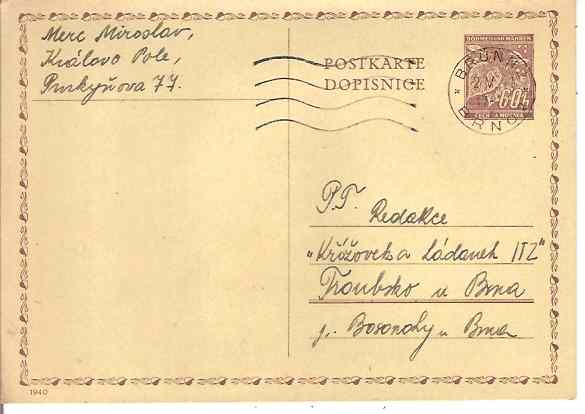 Merc Miroslav,
Královo Pole,
Purkyňova 77.
POSTKARTE
DOPISNICE
BÖHMEN UND MÄHREN
60h
ČECHY A MORAVA
BRÜNN
BRNO
P.T. Redakce
„Křížovek a hádanek ITZ"
Troubsko u Brna
p. Bosonohy u Brna
1940